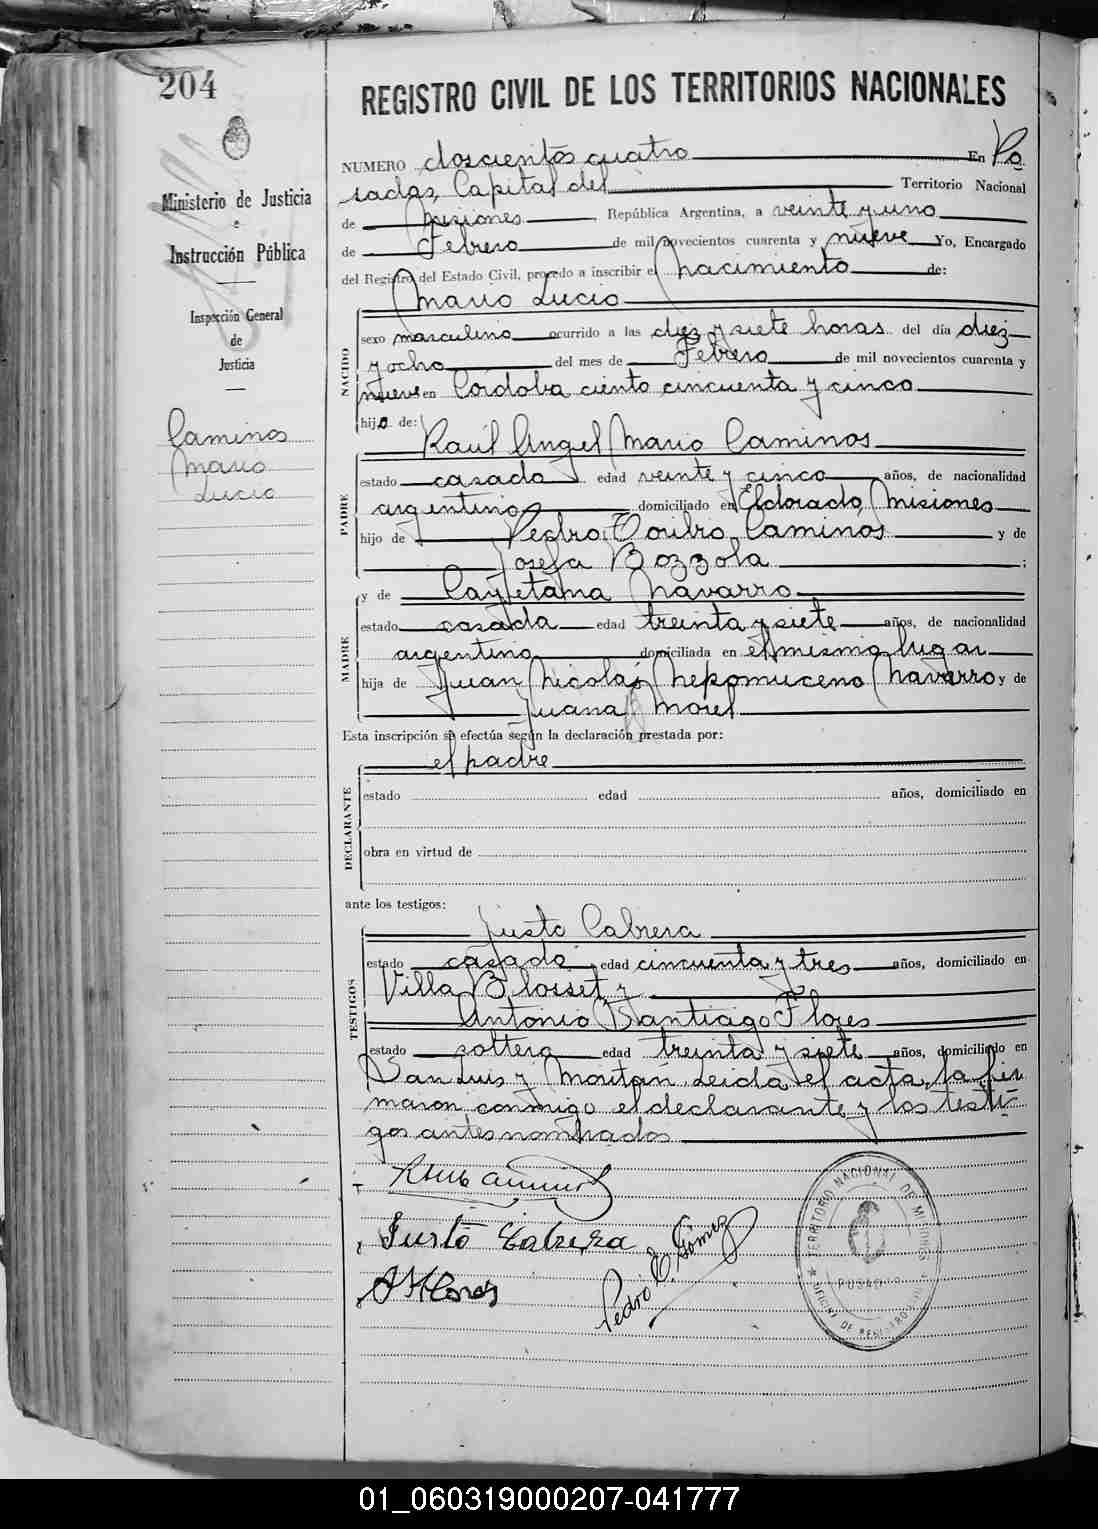 204
REGISTRO CIVIL DE LOS TERRITORIOS NACIONALES
Ministerio de Justicia
e
Instrucción Pública
Inspección General
de
Justicia
Caminos
Mario
Lucio
NUMERO doscientos cuatro En Po
sadas, Capital del Territorio Nacional
de Misiones, República Argentina, a veinte y uno
de Febrero de mil novecientos cuarenta y nueve Yo, Encargado
del Registro del Estado Civil, procedo a inscribir el nacimiento de:
Mario Lucio
NACIDO
sexo masculino ocurrido a las diez y siete horas del día diez
y ocho del mes de Febrero de mil novecientos cuarenta y
nueve en Córdoba ciento cincuenta y cinco
hijo de:
Raúl Angel Mario Caminos
PADRE
estado casado edad veinte y cinco años, de nacionalidad
argentino domiciliado en Eldorado, Misiones
hijo de Pedro Toribio Caminos y de
Josefa Bozzola ;
y de Cayetana Navarro
MADRE
estado casada edad treinta y siete años, de nacionalidad
argentina domiciliada en el mismo lugar
hija de Juan Nicolás Nepomuceno Navarro y de
Juana Morel
Esta inscripción se efectúa según la declaración prestada por:
el padre
DECLARANTE
estado edad años, domiciliado en
obra en virtud de
ante los testigos:
Justo Cabrera
TESTIGOS
estado casado edad cincuenta y tres años, domiciliado en
Villa Blosset y
Antonio Santiago Flores
estado soltero edad treinta y siete años, domiciliado en
San Luis y Moritán. Leida el acta, la fir
maron conmigo el declarante y los testi-
gos antes nombrados
Justo Cabrera
A S Flores
Pedro E. Gómez
TERRITORIO NACIONAL DE MISIONES
POSADAS
01_060319000207-041777